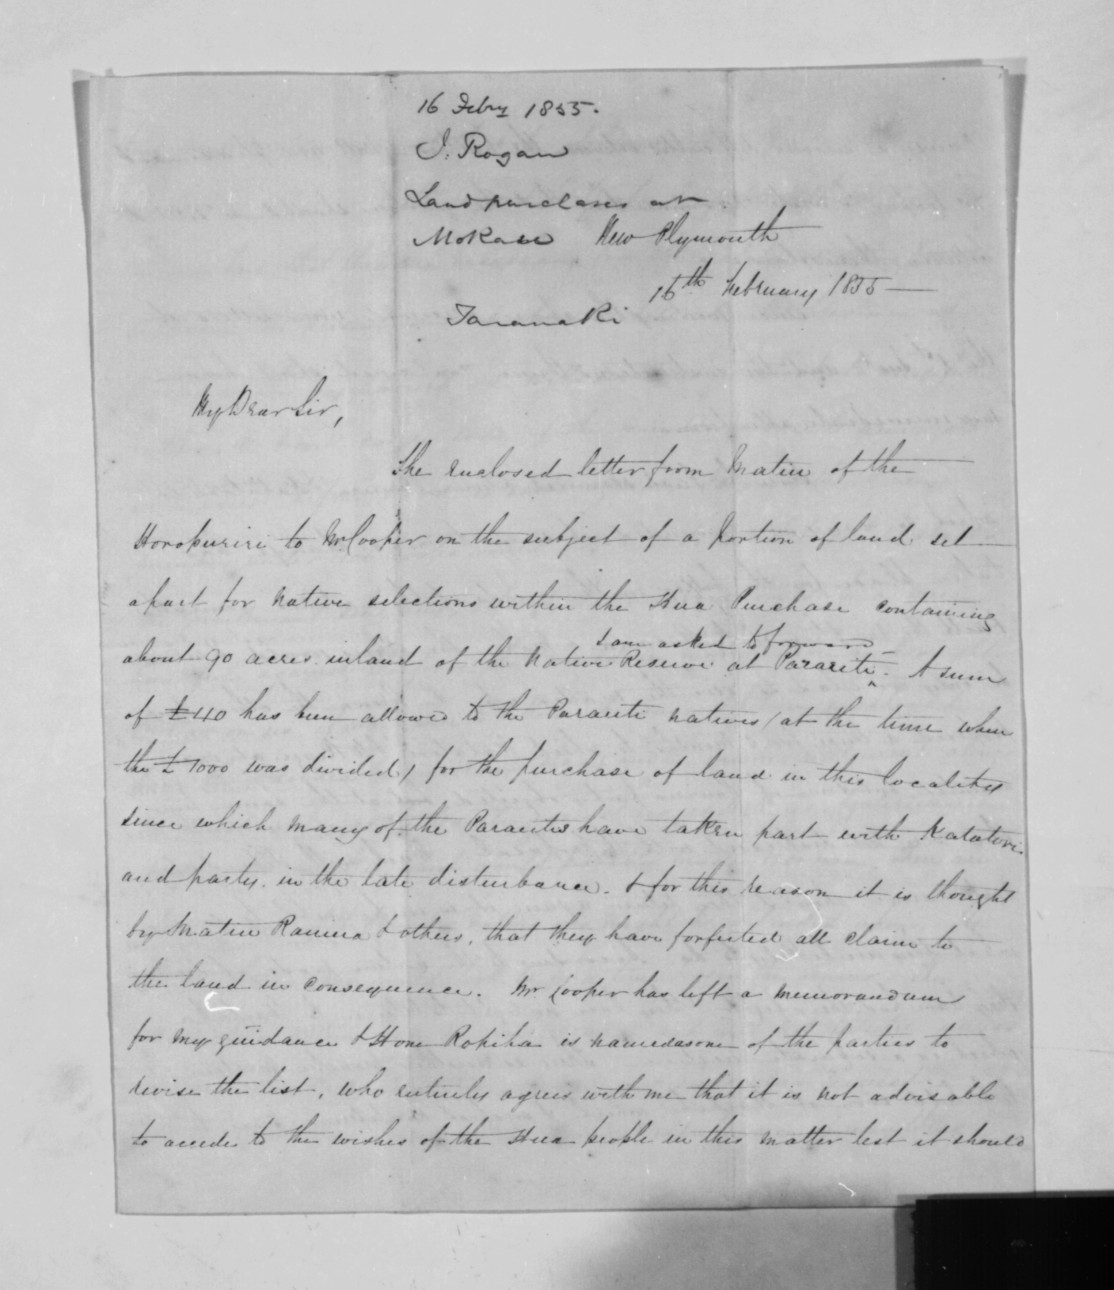 16 Febry 1855.
J. Rogan
Land purchases at
Mokau
New Plymouth
16th February 1855
Taranaki
My Dear Sir,
The enclosed letter from Matiu of the
Horopuriri to Mr. Cooper on the subject of a portion of land set
apart for Native selections within the Hua Purchase containing
I am asked to forward
about 90 acres inland of the Native Reserve at Paraiti. A sum
of £40 has been allowed to the Paraiti natives (at the time when
the £1000 was divided) for the purchase of land in this locality
since which many of the Paraites have taken part with Katatori
and party in the late disturbance. & for this reason it is thought
by Matiu Raniera & others, that they have forfeited all claim to
the land in consequence. Mr Cooper has left a memorandum
for my guidance & Hone Ropiha is named as one of the parties to
revise the list, who entirely agrees with me that it is not advisable
to accede to the wishes of the Hua people in this matter lest it should